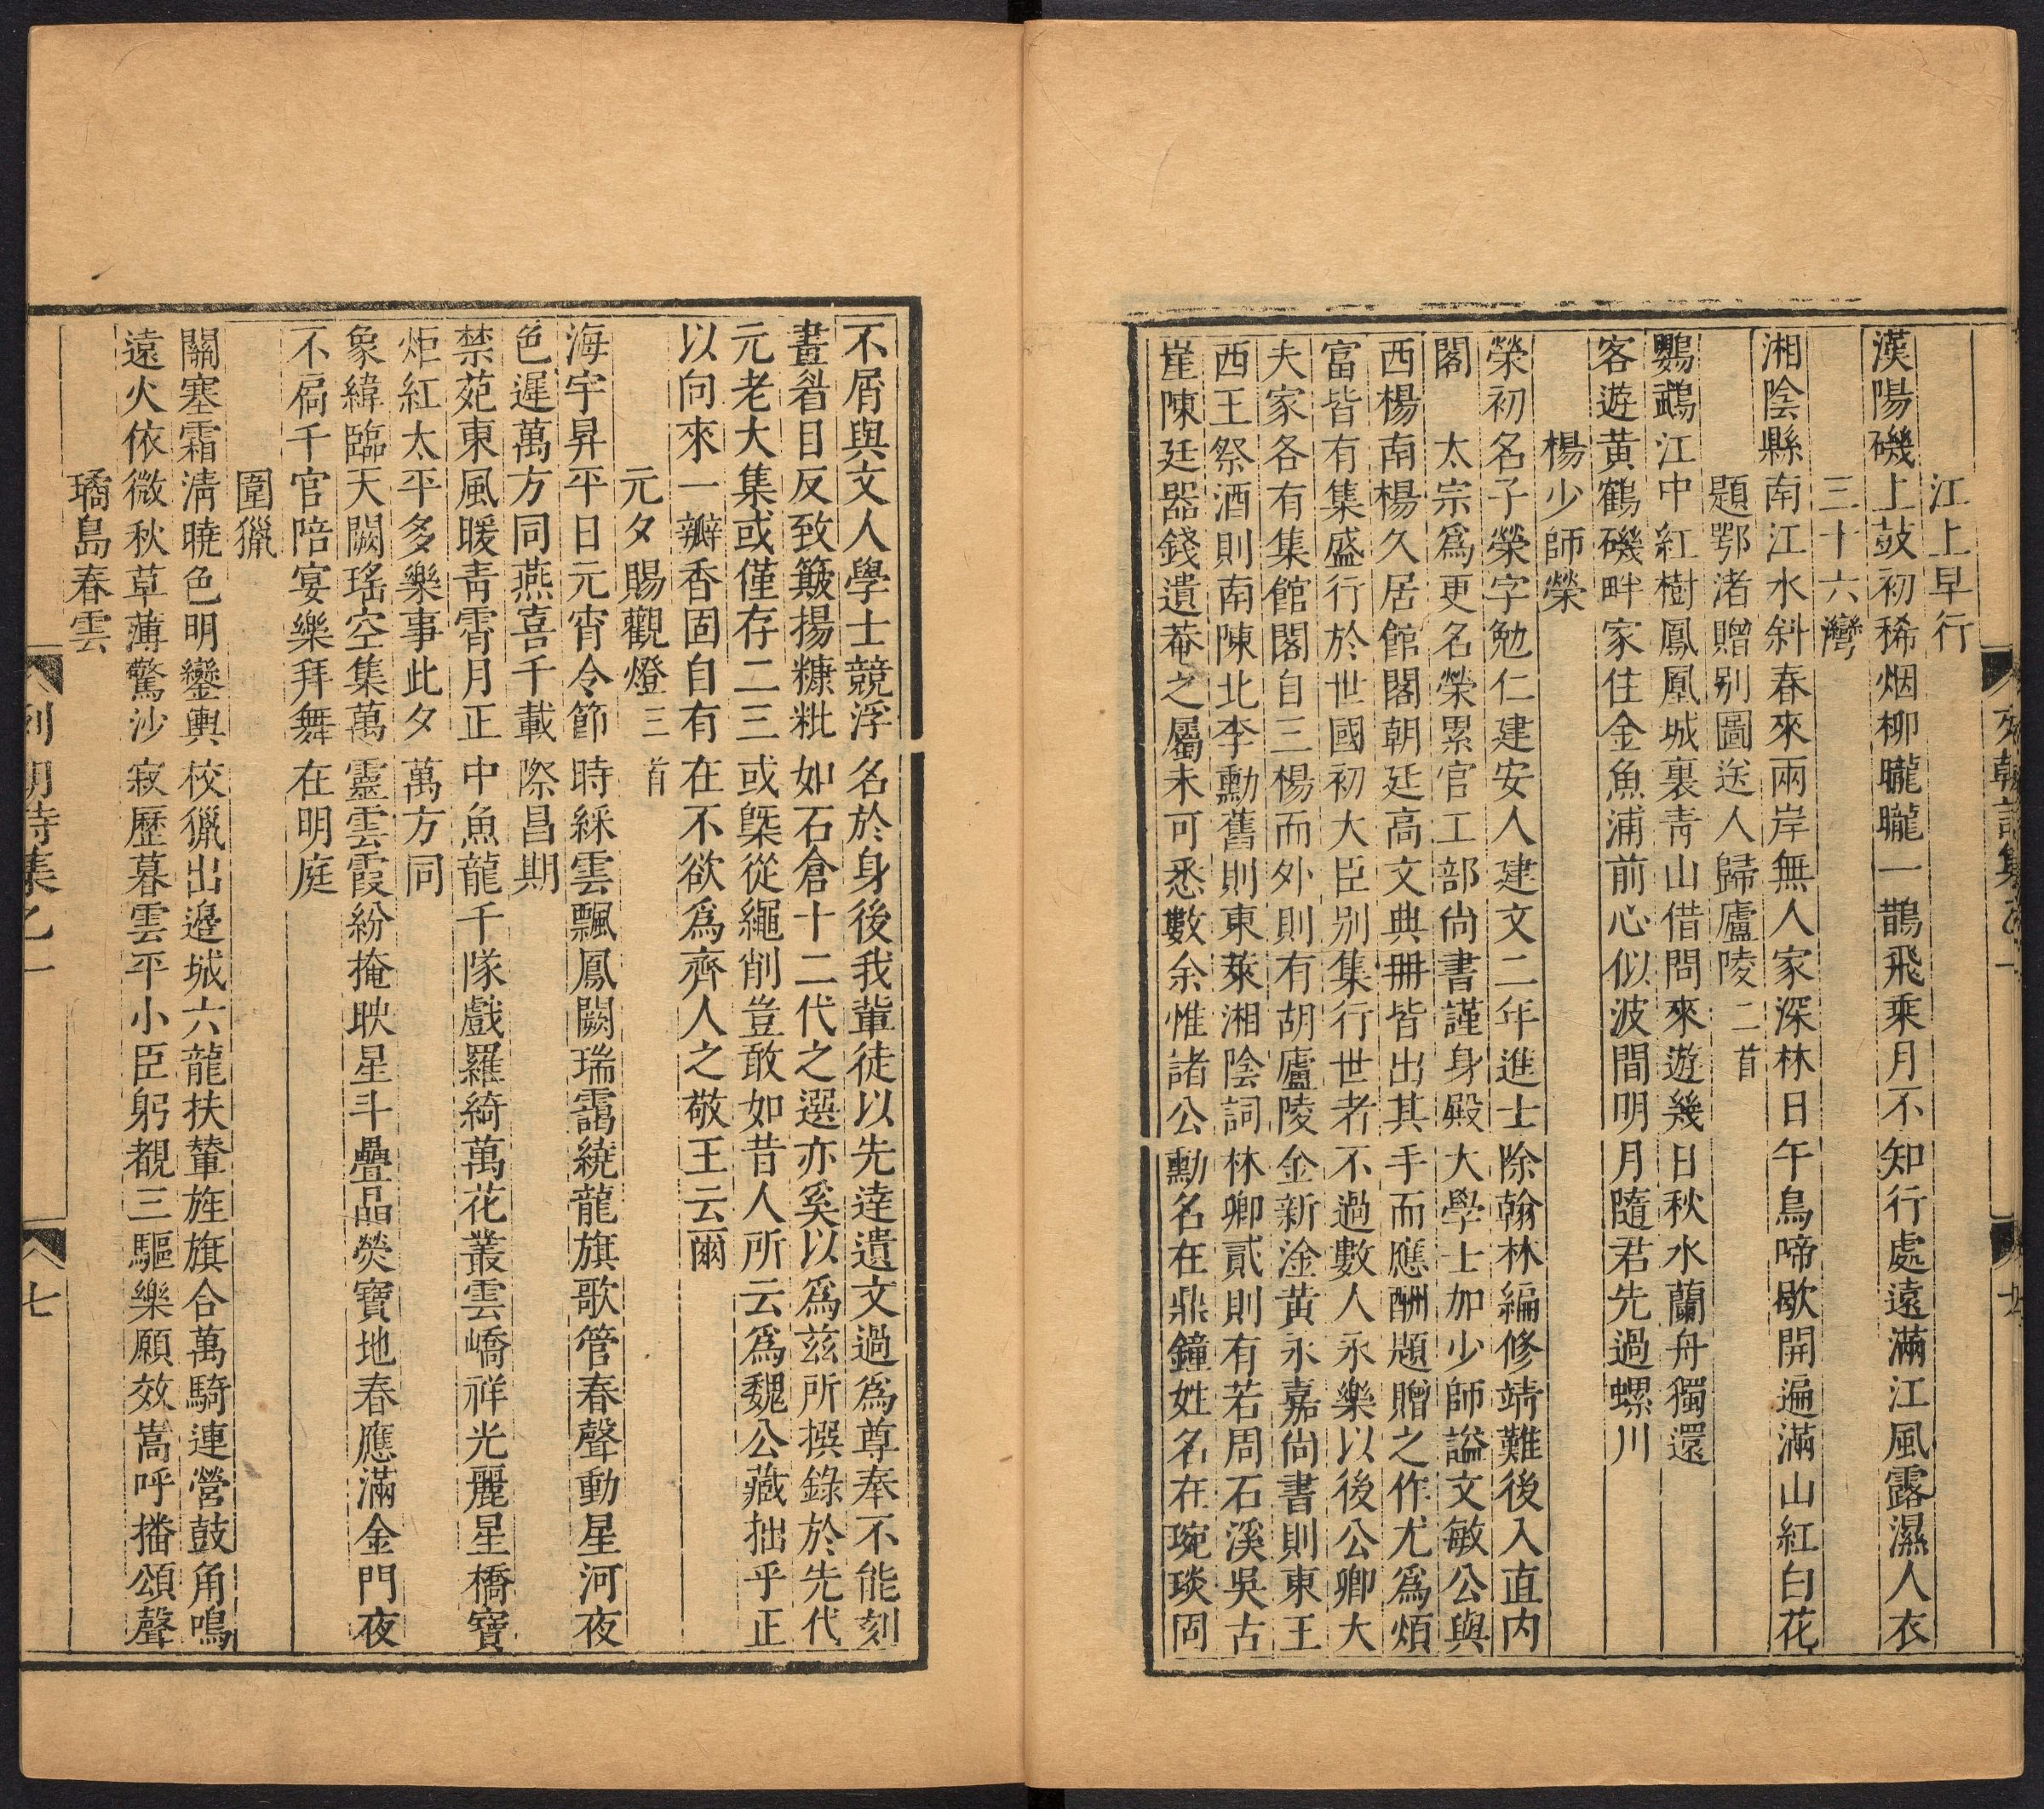 江上早行
漢陽磯上鼓初稀烟柳矓矓一鵲飛乗月不知行處遠滿江風露濕人衣
三十六灣
湘陰縣南江水斜春來兩岸無人家深林日午鳥啼歇開遍滿山紅白花
題鄂渚贈别圖送人歸廬陵二首
鸚鵡江中紅樹鳳凰城裏靑山借問來遊幾日秋水蘭舟獨還
客遊黄鶴磯畔家住金魚浦前心似波間明月隨君先過螺川
楊少師榮
榮初名子榮字勉仁建安人建文二年進士除翰林編修靖難後入直内
閣　太宗爲更名榮累官工部尚書謹身殿大學士加少師謚文敏公與
西楊南楊久居館閣朝廷高文典冊皆出其手而應酬題贈之作尤爲煩
富皆有集盛行於世國初大臣别集行世者不過數人永樂以後公卿大
夫家各有集館閣自三楊而外則有胡廬陵金新淦黄永嘉尚書則東王
西王祭酒則南陳北李勳舊則東萊湘陰詞林卿貳則有若周石溪吳古
崖陳廷器錢遺菴之屬未可悉數余惟諸公勳名在鼎鐘姓名在琬琰固
不屑與文人學士競浮名於身後我輩徒以先達遺文過爲尊奉不能刻
畫眉目反致簸揚糠粃如石倉十二代之選亦奚以爲兹所撰錄於先代
元老大集或僅存二三或槩從繩削豈敢如昔人所云爲魏公藏拙乎正
以向來一瓣香固自有在不欲爲齊人之敬王云爾
元夕賜觀燈三首
海宇昇平日元宵令節時綵雲飄鳳闕瑞靄繞龍旗歌管春聲動星河夜
色遲萬方同燕喜千載際昌期
禁苑東風暖靑霄月正中魚龍千隊戲羅綺萬花叢雲嶠祥光麗星橋寶
炬紅太平多樂事此夕萬方同
象緯臨天闕瑤空集萬靈雲霞紛掩映星斗疊晶熒寶地春應滿金門夜
不扃千官陪宴樂拜舞在明庭
圍獵
關塞霜清曉色明鑾輿校獵出邊城六龍扶輦旌旗合萬騎連營鼓角鳴
遠火依微秋草薄驚沙寂歷暮雲平小臣躬覩三驅樂願效嵩呼播頌聲
璚島春雲
列朝詩集乙一
七